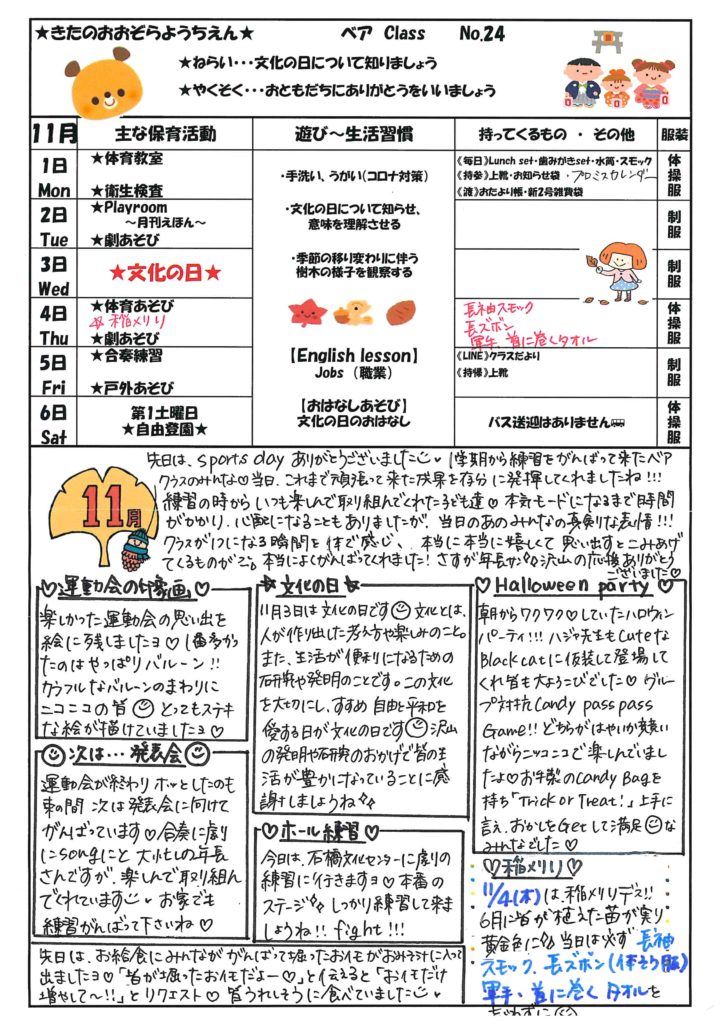 ★きたのおおぞらようちえん★ ベア Class No.24
★ねらい・・・文化の日について知りましょう
★やくそく・・・おともだちにありがとうをいいましょう
11月 主な保育活動 遊び〜生活習慣 持ってくるもの ・ その他 服装
1日 Mon
★体育教室
★衛生検査
・手洗い、うがい(コロナ対策)
《毎日》Lunch set・歯みがきset・水筒・スモック
《持参》上靴・お知らせ袋・プロミスカレンダー
《渡》おたより帳・新2号雑費袋
体操服
2日 Tue
★Playroom
〜月刊えほん〜
★劇あそび
・文化の日について知らせ、
意味を理解させる
制服
3日 Wed
★文化の日★
・季節の移り変わりに伴う
樹木の様子を観察する
制服
4日 Thu
★体育あそび
☆稲メリリ
★劇あそび
長袖スモック
長ズボン
軍手 首に巻くタオル
体操服
5日 Fri
★合奏練習
★戸外あそび
【English lesson】
Jobs (職業)
《LINE》クラスだより
《持帰》上靴
制服
6日 Sat
第1土曜日
★自由登園★
【おはなしあそび】
文化の日のおはなし
バス送迎はありません
体操服
11月
先日は、sports day ありがとうございました 1学期から練習をがんばって来たベア
クラスのみんな♡当日、これまで頑張って来た成果を存分に発揮してくれましたね!!!
練習の時からいつも楽しんで取り組んでくれた子ども達♡本気モードになるまで時間
がかかり、心配になることもありましたが、当日のあのみんなの真剣な表情!!!
クラスが1つになる瞬間を体で感じ、本当に本当に嬉しくて思い出すとこみあげ
てくるものが…。本当によくがんばってくれました!さすが年長が♡沢山の応援ありがとう
ございました♡
♡運動会の絵画♡
楽しかった運動会の思い出を
絵に残しましたヨ♡1番多かっ
たのはやっぱりバルーン!!
カラフルなバルーンのまわりに
ニコニコの皆 とってもステキ
な絵が描けていましたヨ♡
次は… 発表会
運動会が終わりホッとしたのも
束の間 次は発表会に向けて
がんばっています♡合奏に劇
にsongにと大忙しの年長
さんですが、楽しんで取り組ん
でくれています お家でも
練習がんばって下さいね♡
☆文化の日☆
11月3日は文化の日です 文化とは、
人が作り出した考え方や楽しみのこと。
また、生活が便利になるための
研究や発明のことです。この文化
を大切にし、すすめ 自由と平和を
愛する日が文化の日です 沢山
の発明や研究のおかげで皆の生
活が豊かになっていることに感
謝しましょうね
♡ホール練習♡
今日は、石橋文化センターに劇の
練習に行きますヨ♡本番の
ステージ しっかり練習して来ま
しょうね!! fight!!!
♡Halloween party♡
朝からワクワク♡していたハロウィン
パーティ!!! ハジャ先生もCuteな
Black catに仮装して登場して
くれ皆も大よろこびでした♡グルー
プ対抗Candy pass pass
Game!! どちらがはやいか競い
ながらニッコニコで楽しんでいまし
たよ♡お手製のCandy Bagを
持ち「Trick or Treat!」上手に
言え、おかしをGetして満足 な
みんなでした♡
♡稲メリリ♡
11/4(木)は、稲メリリデス!!
6月に皆が植えた苗が実り
黄金色に 当日は必ず 長袖
スモック、長ズボン(体そう服)
軍手、首に巻くタオルを
先日は、お給食にみんながんばって掘ったおイモがおみそ汁に入って
出ましたヨ♡「皆が掘ったおイモだよー♡」と伝えると「おイモだけ
増やして〜!!」とリクエスト♡皆うれしそうに食べていました♡